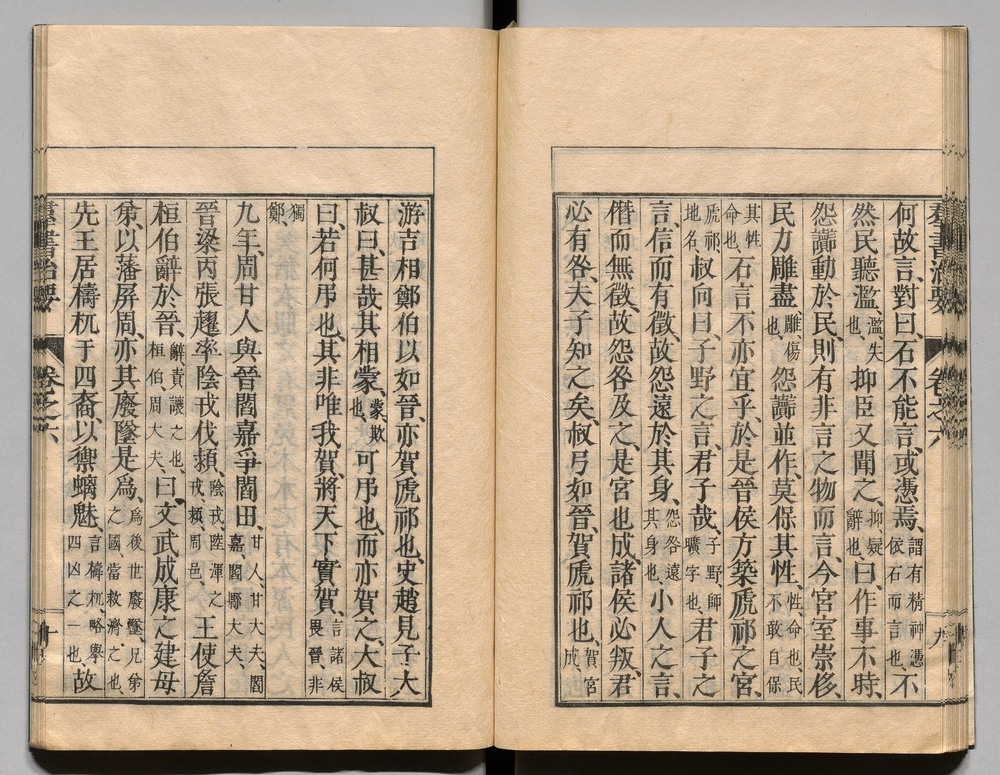 何故言、對曰、石不能言、或憑焉、謂有精神憑依石而言也、不
然民聽濫、濫失也、抑臣又聞之、抑疑辭也、曰、作事不時、
怨讟動於民、則有非言之物而言、今宮室崇侈、
民力雕盡、雕傷也、怨讟並作、莫保其性、性、命也、民不敢自保
其性命也、石言不亦宜乎、於是晉侯方築虒祁之宮、
虒祁、地名、叔向曰、子野之言、君子哉、子野、師曠字也、君子之
言、信而有徵、故怨遠於其身、怨咎遠其身也、小人之言、
僭而無徵、故怨咎及之、是宮也成、諸侯必叛、君
必有咎、夫子知之矣、叔弓如晉、賀虒祁也、賀宮成、
游吉相鄭伯以如晉、亦賀虒祁也、史趙見子大
叔曰、甚哉其相蒙、蒙欺也、可弔也、而亦賀之、大叔
曰、若何弔也、其非唯我賀、將天下實賀、言諸侯畏晉、非
獨鄭、
九年、周甘人與晉閻嘉爭閻田、甘人、甘大夫、閻嘉、閻縣大夫、
晉梁丙張趯率陰戎伐潁、陰戎、陸渾之戎、潁、周邑、王使詹
桓伯辭於晉、辭責讓之也、桓伯、周大夫、曰、文武成康之建母
弟、以藩屏周、亦其廢墜是爲、爲後世廢墜、兄弟之國、當救濟之也、
先王居檮杌于四裔、以禦螭魅、言檮杌、略舉四凶之一也、故
群書治要
卷之六
九
群書治要
卷之六
十